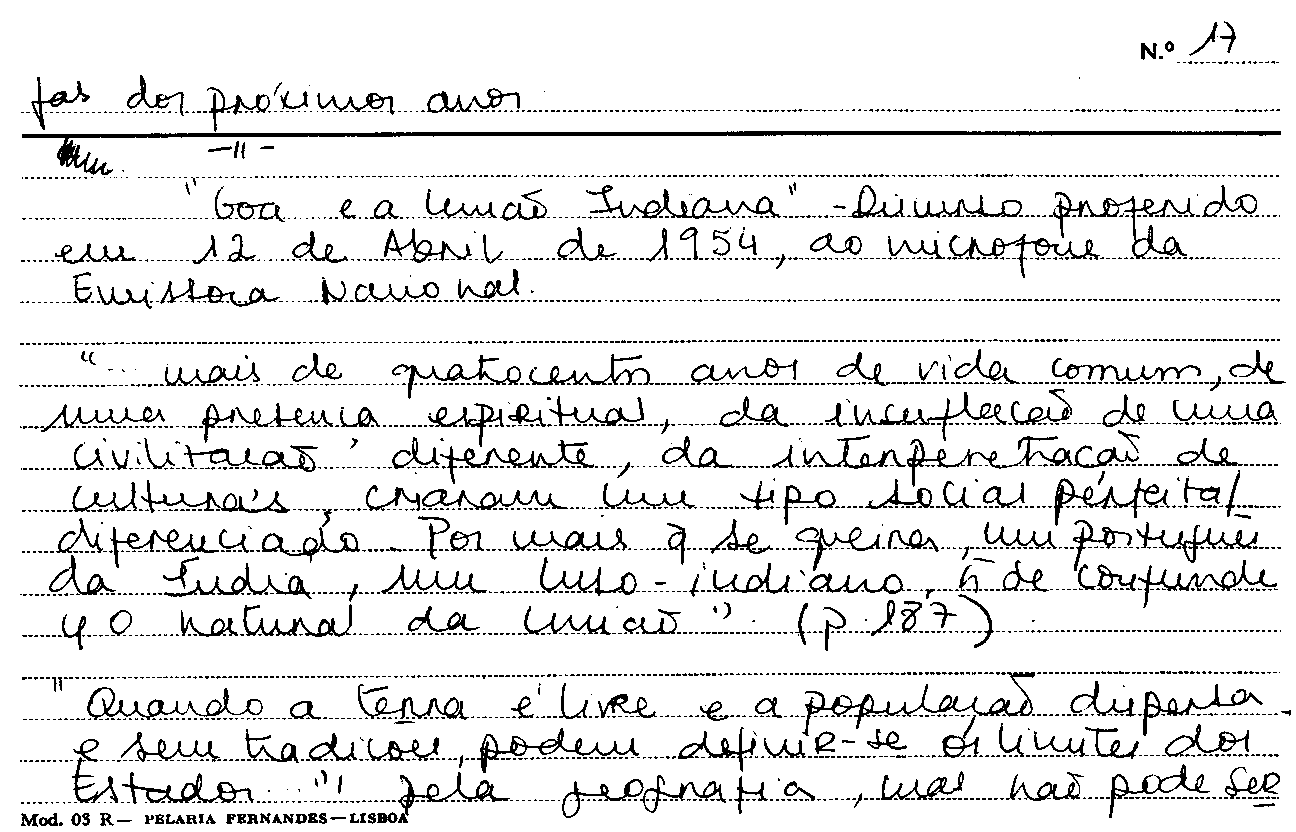 N.º 17
fas dos próximos anos
-"-
"Goa e a União Indiana" - Discurso proferido
em 12 de Abril de 1954, ao microfone da
Emissora Nacional.
"... mais de quatrocentos anos de vida comum, de
uma presença espiritual, da insuflação de uma
civilização diferente, da interpenetração de
culturas, criaram um tipo social perfeita/
diferenciado. Por mais q se queira, um português
da Índia, um luso-indiano, ñ se confunde
c/ o natural da União" (p. 187)
"Quando a terra é livre e a população dispersa
e sem tradições, podem definir-se os limites dos
Estados "" pela geografia, mas não pode ser
Mod. 03 R — PELARIA FERNANDES — LISBOA